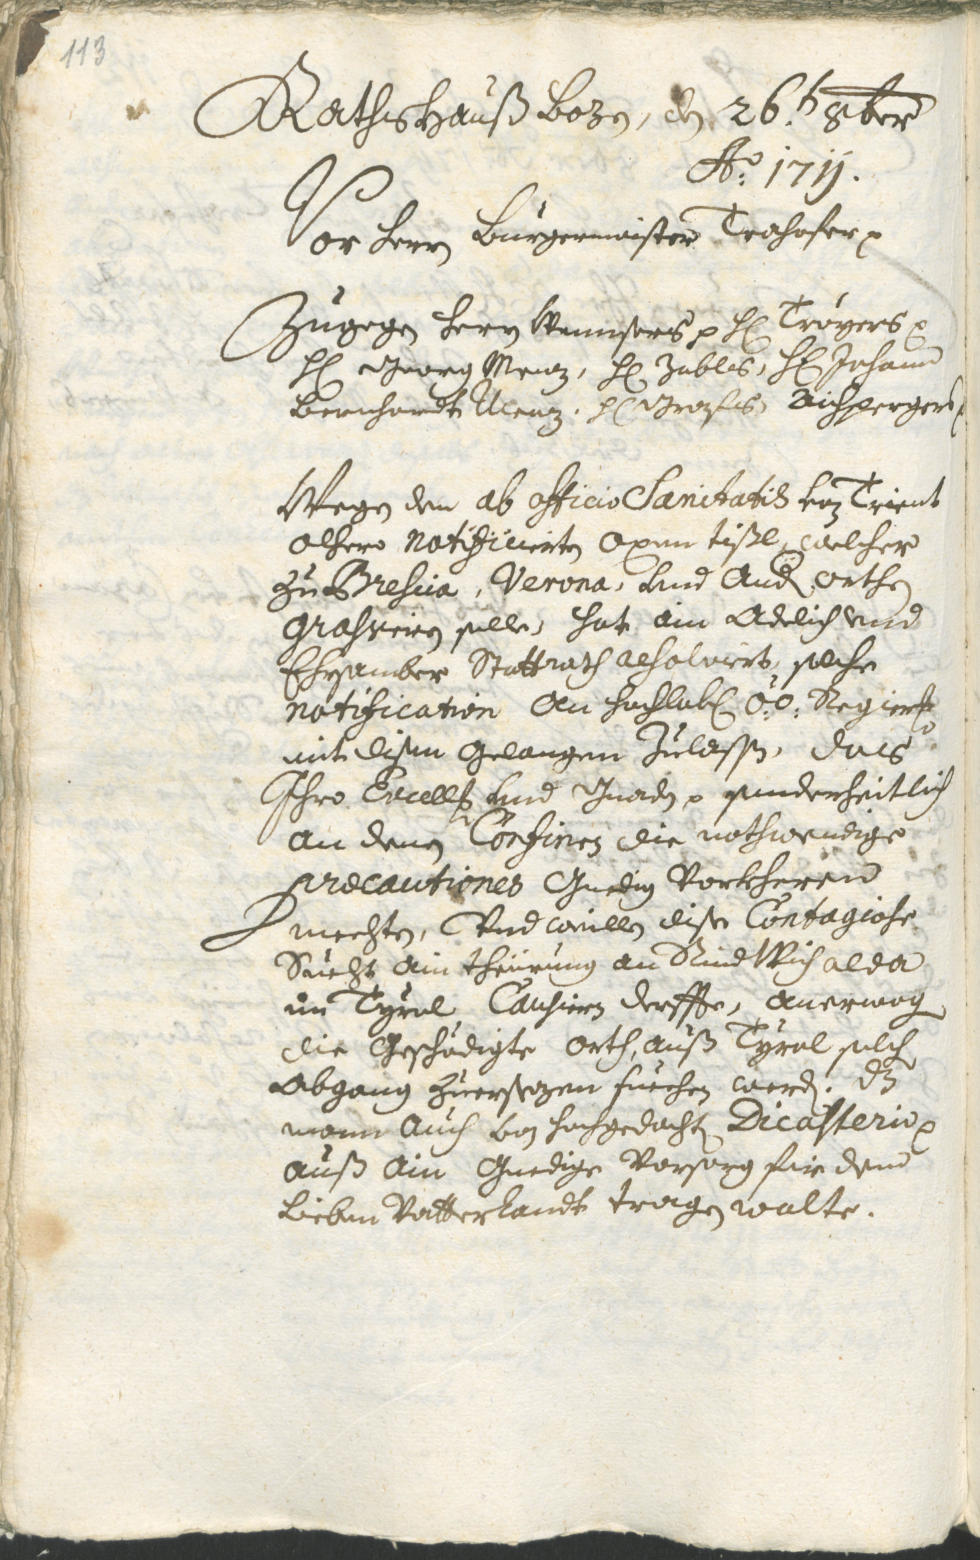 113
Rathshauß Bozen, den 26.t 8ber
Ao: 1711.
Vor Herrn Burgermaister Trahofer p
Zugegen Herrn Wennsers p H: Troyers p
H: Georg Menz, H: Zobls, H: Johann
Bernhardt Menz, H: Grafis, Aichpergers p
Wegen dem ab officio Sanitatis von Trient
alhero notificierten oxen tißl, welcher
zu Brescia, Verona, und and orthen
grahsiren solle, hat ain Adelich und
Ehrsamber Stattrath resolviert, solche
notification an hochlobl: O:Ö: Regierung
mit disem gelangen zulassen, dass
Ihro Excellz und Gnaden p sonderheitlich
an denen Confinen die nothwendige
precautiones gnedig vorkheren
mechten, Und weillen dise Contagiose
Sucht ain theürung an Rind Vich alda
in Tyrol Causiren derffte, anerwog
die geschödigte orth, auß Tyrol solch
Abgang zuersezen suechen werden: dz
mann auch von hochgedacht Dicasterio p
auß ain gnedige vorsorg für dem
lieben Vatterlandt tragen wolte.